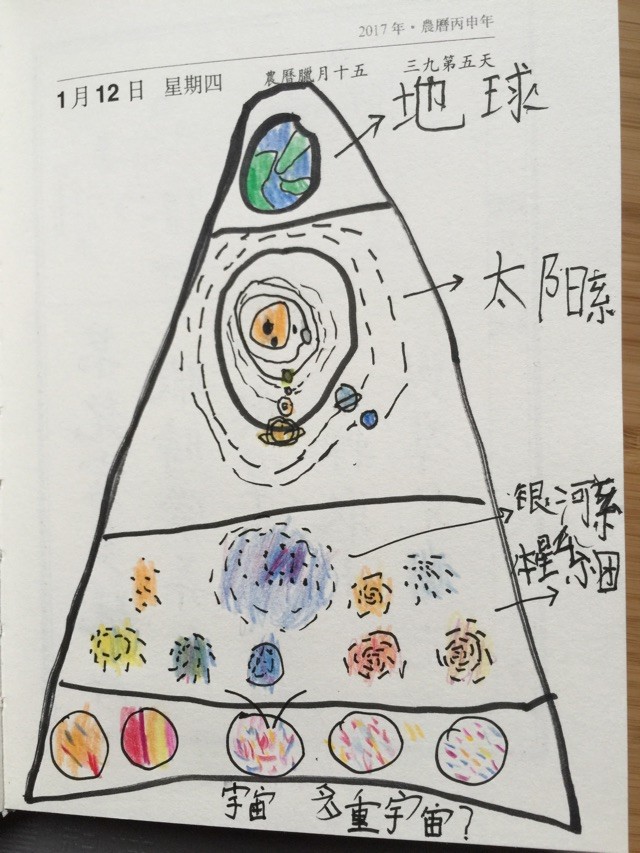 2017 年・農曆丙申年
1 月 12 日 星期四 農曆臘月十五 三九第五天
地球
太阳系
银河系
星系团
宇宙 多重宇宙?